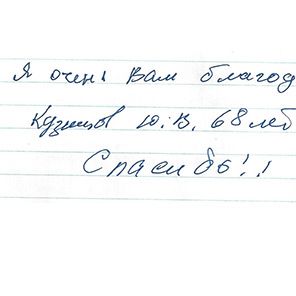 Я очень Вам благод
Кузнецов Ю.В. 68 лет
Спасибо!!